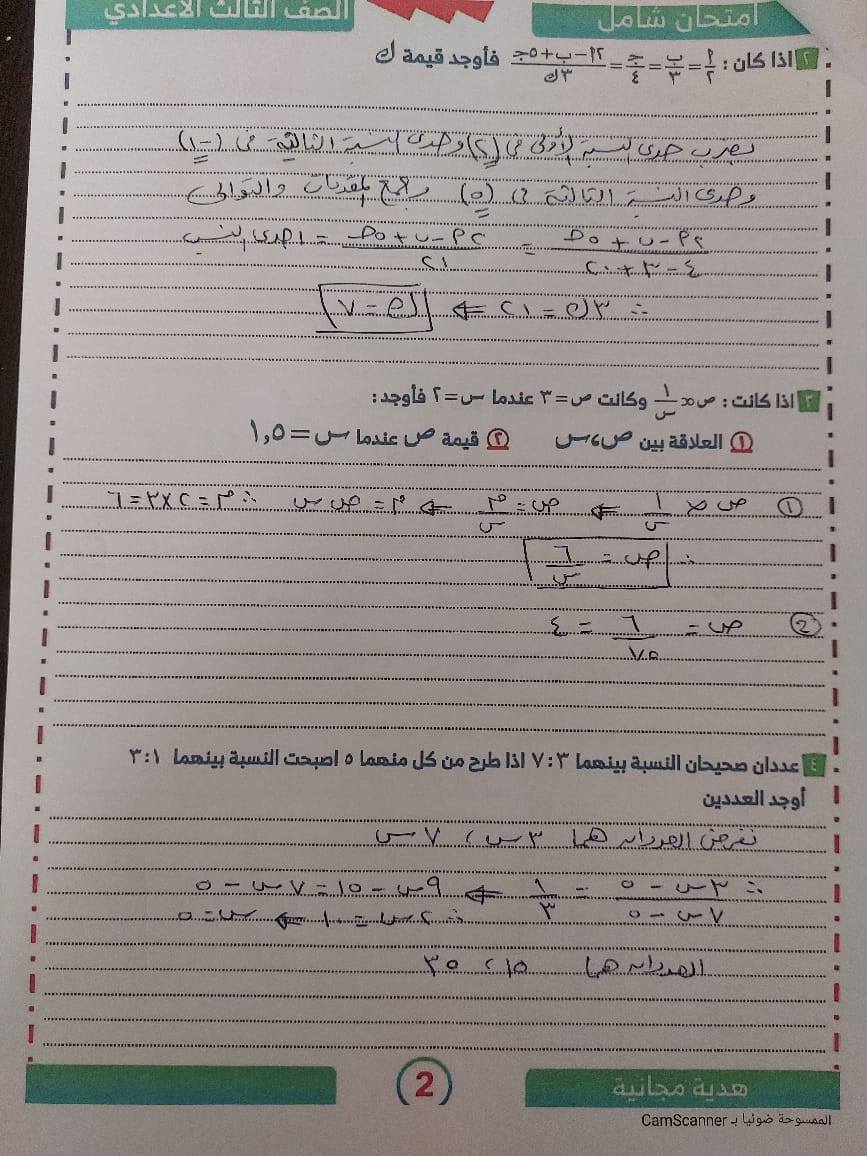 امتحان شامل
الصف الثالث الاعدادي
٢ اذا كان : أ/٢ = ب/٣ = ج/٤ = (٢أ − ب + ٥ج)/٣ك فأوجد قيمة ك
بضرب حدى النسبة الأولى فى (٢) وحدى النسبة الثانية فى (−١)
وحدى النسبة الثالثة فى (٥) وجمع المقدمات والتوالى
(٢أ − ب + ٥ج)/(٤ − ٣ + ٢٠) = (٢أ − ب + ٥ج)/٢١ = احدى النسب
∴ ٣ك = ٢١ ⇐ ك = ٧
٣ اذا كانت : ص ∝ ١/س وكانت ص = ٣ عندما س = ٢ فأوجد :
١ العلاقة بين ص ، س ٢ قيمة ص عندما س = ١,٥
① ص ∝ ١/س ⇐ ص = م/س ⇐ م = ص س ∴ م = ٢×٣ = ٦
∴ ص = ٦/س
② ص = ٦/ = ٤
٤ عددان صحيحان النسبة بينهما ٣ : ٧ اذا طرح من كل منهما ٥ اصبحت النسبة بينهما ١ : ٣
أوجد العددين
نفرض العددان هما ٣س ، ٧س
∴ (٣س − ٥)/(٧س − ٥) = ١/٣ ⇐ ٩س − ١٥ = ٧س − ٥
∴ ٢س = ١٠ ⇐ س = ٥
العددان هما ١٥ ، ٣٥
هدية مجانية
2
الممسوحة ضوئيا بـ CamScanner